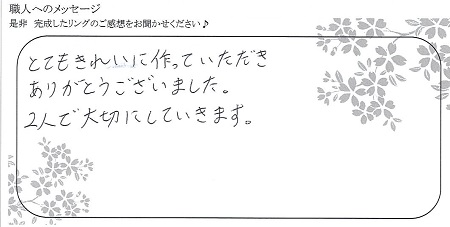 職人へのメッセージ
是非 完成したリングのご感想をお聞かせください♪
とてもきれいに作っていただき
ありがとうございました。
2人で大切にしていきます。